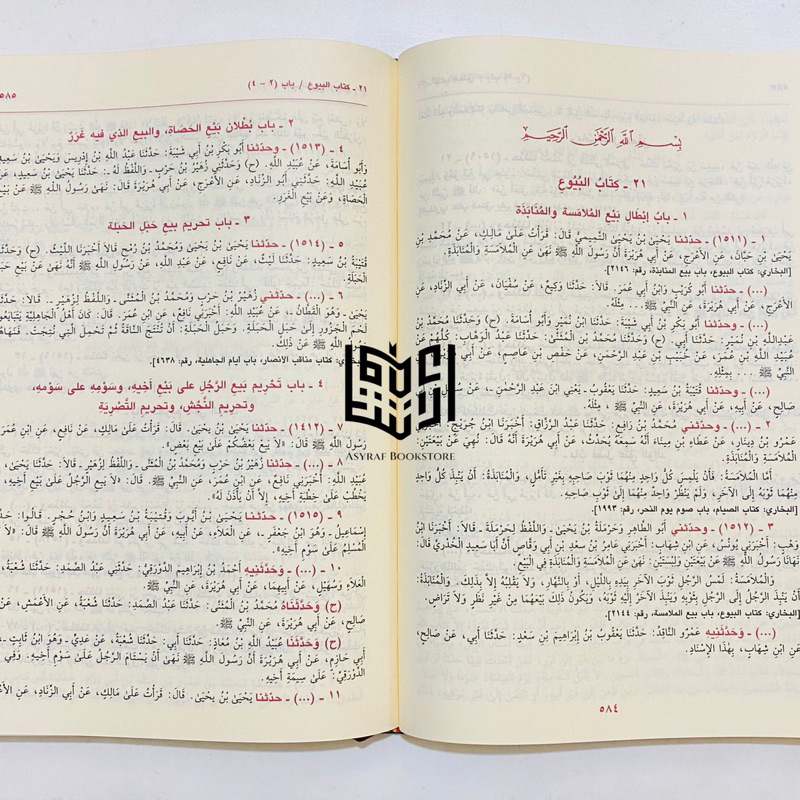 بِسْمِ اللَّهِ الرَّحْمَنِ الرَّحِيمِ
٢١ ـ كِتَابُ البُيُوعِ
١ ـ بابُ إبْطَالِ بَيْعِ المُلَامَسَةِ والمُنَابَذَةِ
١ ـ (١٥١١) ـ حدّثنا يَحْيَىٰ بْنُ يَحْيَىٰ التَّمِيمِيُّ قَالَ: قَرَأْتُ عَلَىٰ مَالِكٍ، عَنْ مُحَمَّدِ بْنِ
يَحْيَىٰ بْنِ حَبَّانَ، عَنِ الأَعْرَجِ، عَنْ أَبِي هُرَيْرَةَ أَنَّ رَسُولَ اللَّهِ ﷺ نَهَىٰ عَنِ الْمُلَامَسَةِ وَالْمُنَابَذَةِ.
[البخاري: كتاب البيوع، باب بيع المنابذة، رقم: ٢١٤٦].
(...) ـ حدّثنا أَبُو كُرَيْبٍ وَابْنُ أَبِي عُمَرَ. قَالَا: حَدَّثَنَا وَكِيعٌ، عَنْ سُفْيَانَ، عَنْ أَبِي الزِّنَادِ، عَنِ
الأَعْرَجِ، عَنْ أَبِي هُرَيْرَةَ، عَنِ النَّبِيِّ ﷺ ... مِثْلَهُ.
(...) ـ وحدّثنا أَبُو بَكْرِ بْنُ أَبِي شَيْبَةَ: حَدَّثَنَا ابْنُ نُمَيْرٍ وَأَبُو أُسَامَةَ. (ح) وَحَدَّثَنَا مُحَمَّدُ بْنُ
عَبْدِ اللَّهِ بْنِ نُمَيْرٍ: حَدَّثَنَا أَبِي. (ح) وَحَدَّثَنَا مُحَمَّدُ بْنُ الْمُثَنَّىٰ: حَدَّثَنَا عَبْدُ الْوَهَّابِ: كُلُّهُمْ عَنْ
عُبَيْدِ اللَّهِ بْنِ عُمَرَ، عَنْ خُبَيْبِ بْنِ عَبْدِ الرَّحْمَنِ، عَنْ حَفْصِ بْنِ عَاصِمٍ، عَنْ أَبِي هُرَيْرَةَ، عَنِ
النَّبِيِّ ﷺ ... بِمِثْلِهِ.
(...) ـ وحدّثنا قُتَيْبَةُ بْنُ سَعِيدٍ: حَدَّثَنَا يَعْقُوبُ ـ يَعْنِي ابْنَ عَبْدِ الرَّحْمَنِ ـ، عَنْ سُهَيْلِ بْنِ أَبِي
صَالِحٍ، عَنْ أَبِيهِ، عَنْ أَبِي هُرَيْرَةَ، عَنِ النَّبِيِّ ﷺ، مِثْلَهُ.
٢ ـ (...) ـ وحدّثني مُحَمَّدُ بْنُ رَافِعٍ: حَدَّثَنَا عَبْدُ الرَّزَّاقِ: أَخْبَرَنَا ابْنُ جُرَيْجٍ: أَخْبَرَنِي
عَمْرُو بْنُ دِينَارٍ، عَنْ عَطَاءِ بْنِ مِينَاءَ أَنَّهُ سَمِعَهُ يُحَدِّثُ، عَنْ أَبِي هُرَيْرَةَ أَنَّهُ قَالَ: نُهِيَ عَنْ بَيْعَتَيْنِ:
الْمُلَامَسَةِ وَالْمُنَابَذَةِ.
أَمَّا الْمُلَامَسَةُ: فَأَنْ يَلْمِسَ كُلُّ وَاحِدٍ مِنْهُمَا ثَوْبَ صَاحِبِهِ بِغَيْرِ تَأَمُّلٍ، وَالْمُنَابَذَةُ: أَنْ يَنْبِذَ كُلُّ وَاحِدٍ
مِنْهُمَا ثَوْبَهُ إِلَىٰ الآخَرِ، وَلَمْ يَنْظُرْ وَاحِدٌ مِنْهُمَا إِلَىٰ ثَوْبِ صَاحِبِهِ.
[البخاري: كتاب الصيام، باب صوم يوم النحر، رقم: ١٩٩٣].
٣ ـ (١٥١٢) ـ وحدّثني أَبُو الطَّاهِرِ وَحَرْمَلَةُ بْنُ يَحْيَىٰ ـ وَاللَّفْظُ لِحَرْمَلَةَ ـ. قَالَا: أَخْبَرَنَا ابْنُ
وَهْبٍ: أَخْبَرَنِي يُونُسُ، عَنِ ابْنِ شِهَابٍ: أَخْبَرَنِي عَامِرُ بْنُ سَعْدِ بْنِ أَبِي وَقَّاصٍ أَنَّ أَبَا سَعِيدٍ الْخُدْرِيَّ قَالَ:
نَهَانَا رَسُولُ اللَّهِ ﷺ عَنْ بَيْعَتَيْنِ وَلِبْسَتَيْنِ: نَهَىٰ عَنِ الْمُلَامَسَةِ وَالْمُنَابَذَةِ فِي الْبَيْعِ.
وَالْمُلَامَسَةُ: لَمْسُ الرَّجُلِ ثَوْبَ الآخَرِ بِيَدِهِ بِاللَّيْلِ، أَوْ بِالنَّهَارِ، وَلَا يَقْلِبُهُ إِلَّا بِذَلِكَ. وَالْمُنَابَذَةُ:
أَنْ يَنْبِذَ الرَّجُلُ إِلَىٰ الرَّجُلِ بِثَوْبِهِ وَيَنْبِذَ الآخَرُ إِلَيْهِ ثَوْبَهُ، وَيَكُونُ ذَلِكَ بَيْعَهُمَا مِنْ غَيْرِ نَظَرٍ وَلَا تَرَاضٍ.
[البخاري: كتاب البيوع، باب بيع الملامسة، رقم: ٢١٤٤].
(...) ـ وَحَدَّثَنِيهِ عَمْرٌو النَّاقِدُ: حَدَّثَنَا يَعْقُوبُ بْنُ إِبْرَاهِيمَ بْنِ سَعْدٍ: حَدَّثَنَا أَبِي، عَنْ صَالِحٍ،
عَنِ ابْنِ شِهَابٍ، بِهَذَا الإِسْنَادِ.
٥٨٤
٢١ ـ كتاب البيوع / باب (٢ ـ ٤)
٥٨٥
٢ ـ باب بُطْلَانِ بَيْعِ الحَصَاةِ، والبَيْعِ الذي فيه غَرَرٌ
٤ ـ (١٥١٣) ـ وحدّثنا أَبُو بَكْرِ بْنُ أَبِي شَيْبَةَ: حَدَّثَنَا عَبْدُ اللَّهِ بْنُ إِدْرِيسَ وَيَحْيَىٰ بْنُ سَعِيدٍ
وَأَبُو أُسَامَةَ، عَنْ عُبَيْدِ اللَّهِ. (ح) وَحَدَّثَنِي زُهَيْرُ بْنُ حَرْبٍ ـ وَاللَّفْظُ لَهُ ـ: حَدَّثَنَا يَحْيَىٰ بْنُ سَعِيدٍ، عَنْ
عُبَيْدِ اللَّهِ: حَدَّثَنِي أَبُو الزِّنَادِ، عَنِ الأَعْرَجِ، عَنْ أَبِي هُرَيْرَةَ قَالَ: نَهَىٰ رَسُولُ اللَّهِ ﷺ عَنْ بَيْعِ
الْحَصَاةِ، وَعَنْ بَيْعِ الْغَرَرِ.
٣ ـ باب تحريم بيع حَبَلِ الحَبَلَة
٥ ـ (١٥١٤) ـ حدّثنا يَحْيَىٰ بْنُ يَحْيَىٰ وَمُحَمَّدُ بْنُ رُمْحٍ قَالَا أَخْبَرَنَا اللَّيْثُ. (ح) وَحَدَّثَنَا
قُتَيْبَةُ بْنُ سَعِيدٍ: حَدَّثَنَا لَيْثٌ، عَنْ نَافِعٍ، عَنْ عَبْدِ اللَّهِ، عَنْ رَسُولِ اللَّهِ ﷺ أَنَّهُ نَهَىٰ عَنْ بَيْعِ حَبَلِ
الْحَبَلَةِ.
٦ ـ (...) ـ حدّثني زُهَيْرُ بْنُ حَرْبٍ وَمُحَمَّدُ بْنُ الْمُثَنَّىٰ ـ وَاللَّفْظُ لِزُهَيْرٍ ـ. قَالَا: حَدَّثَنَا
يَحْيَىٰ ـ وَهُوَ الْقَطَّانُ ـ، عَنْ عُبَيْدِ اللَّهِ: أَخْبَرَنِي نَافِعٌ، عَنِ ابْنِ عُمَرَ. قَالَ: كَانَ أَهْلُ الْجَاهِلِيَّةِ يَتَبَايَعُونَ
لَحْمَ الْجَزُورِ إِلَىٰ حَبَلِ الْحَبَلَةِ. وَحَبَلُ الْحَبَلَةِ: أَنْ تُنْتَجَ النَّاقَةُ ثُمَّ تَحْمِلَ الَّتِي نُتِجَتْ. فَنَهَاهُمْ
رَسُولُ اللَّهِ ﷺ عَنْ ذَلِكَ.
[البخاري: كتاب مناقب الأنصار، باب أيام الجاهلية، رقم: ٤٦٣٨].
٤ ـ باب تَحْرِيم بَيْعِ الرَّجُلِ على بَيْعِ أخِيهِ، وسَوْمِهِ على سَوْمِهِ،
وتحريمِ النَّجْشِ، وتحريمِ التَّصْرِيَةِ
٧ ـ (١٤١٢) ـ حدّثنا يَحْيَىٰ بْنُ يَحْيَىٰ. قَالَ: قَرَأْتُ عَلَىٰ مَالِكٍ، عَنْ نَافِعٍ، عَنِ ابْنِ عُمَرَ
رَسُولَ اللَّهِ ﷺ قَالَ: «لَا يَبِعْ بَعْضُكُمْ عَلَىٰ بَيْعِ بَعْضٍ».
٨ ـ (...) ـ حدّثنا زُهَيْرُ بْنُ حَرْبٍ وَمُحَمَّدُ بْنُ الْمُثَنَّىٰ ـ وَاللَّفْظُ لِزُهَيْرٍ ـ قَالَا: حَدَّثَنَا يَحْيَىٰ، عَنْ
عُبَيْدِ اللَّهِ: أَخْبَرَنِي نَافِعٌ، عَنِ ابْنِ عُمَرَ، عَنِ النَّبِيِّ ﷺ. قَالَ: «لَا يَبِعِ الرَّجُلُ عَلَىٰ بَيْعِ أَخِيهِ،
يَخْطُبْ عَلَىٰ خِطْبَةِ أَخِيهِ، إِلَّا أَنْ يَأْذَنَ لَهُ».
٩ ـ (١٥١٥) ـ حدّثنا يَحْيَىٰ بْنُ أَيُّوبَ وَقُتَيْبَةُ بْنُ سَعِيدٍ وَابْنُ حُجْرٍ. قَالُوا: حَدَّثَنَا
إِسْمَاعِيلُ ـ وَهُوَ ابْنُ جَعْفَرٍ ـ، عَنِ الْعَلَاءِ، عَنْ أَبِيهِ، عَنْ أَبِي هُرَيْرَةَ أَنَّ رَسُولَ اللَّهِ ﷺ قَالَ: «لَا
الْمُسْلِمُ عَلَىٰ سَوْمِ أَخِيهِ».
١٠ ـ (...) ـ وَحَدَّثَنِيهِ أَحْمَدُ بْنُ إِبْرَاهِيمَ الدَّوْرَقِيُّ: حَدَّثَنِي عَبْدُ الصَّمَدِ: حَدَّثَنَا شُعْبَةُ،
الْعَلَاءِ وَسُهَيْلٍ، عَنْ أَبِيهِمَا، عَنْ أَبِي هُرَيْرَةَ، عَنِ النَّبِيِّ ﷺ.
(ح) وَحَدَّثَنَاهُ مُحَمَّدُ بْنُ الْمُثَنَّىٰ: حَدَّثَنَا عَبْدُ الصَّمَدِ: حَدَّثَنَا شُعْبَةُ، عَنِ الأَعْمَشِ، عَنْ
صَالِحٍ، عَنْ أَبِي هُرَيْرَةَ، عَنِ النَّبِيِّ ﷺ.
(ح) وَحَدَّثَنَا عُبَيْدُ اللَّهِ بْنُ مُعَاذٍ: حَدَّثَنَا أَبِي: حَدَّثَنَا شُعْبَةُ، عَنْ عَدِيٍّ ـ وَهُوَ ابْنُ ثَابِتٍ ـ،
أَبِي حَازِمٍ، عَنْ أَبِي هُرَيْرَةَ أَنَّ رَسُولَ اللَّهِ ﷺ نَهَىٰ أَنْ يَسْتَامَ الرَّجُلُ عَلَىٰ سَوْمِ أَخِيهِ. وَفِي
الدَّوْرَقِيِّ: عَلَىٰ سِيمَةِ أَخِيهِ.
١١ ـ (...) ـ حدّثنا يَحْيَىٰ بْنُ يَحْيَىٰ. قَالَ: قَرَأْتُ عَلَىٰ مَالِكٍ، عَنْ أَبِي الزِّنَادِ، عَنِ
ASYRAF BOOKSTORE